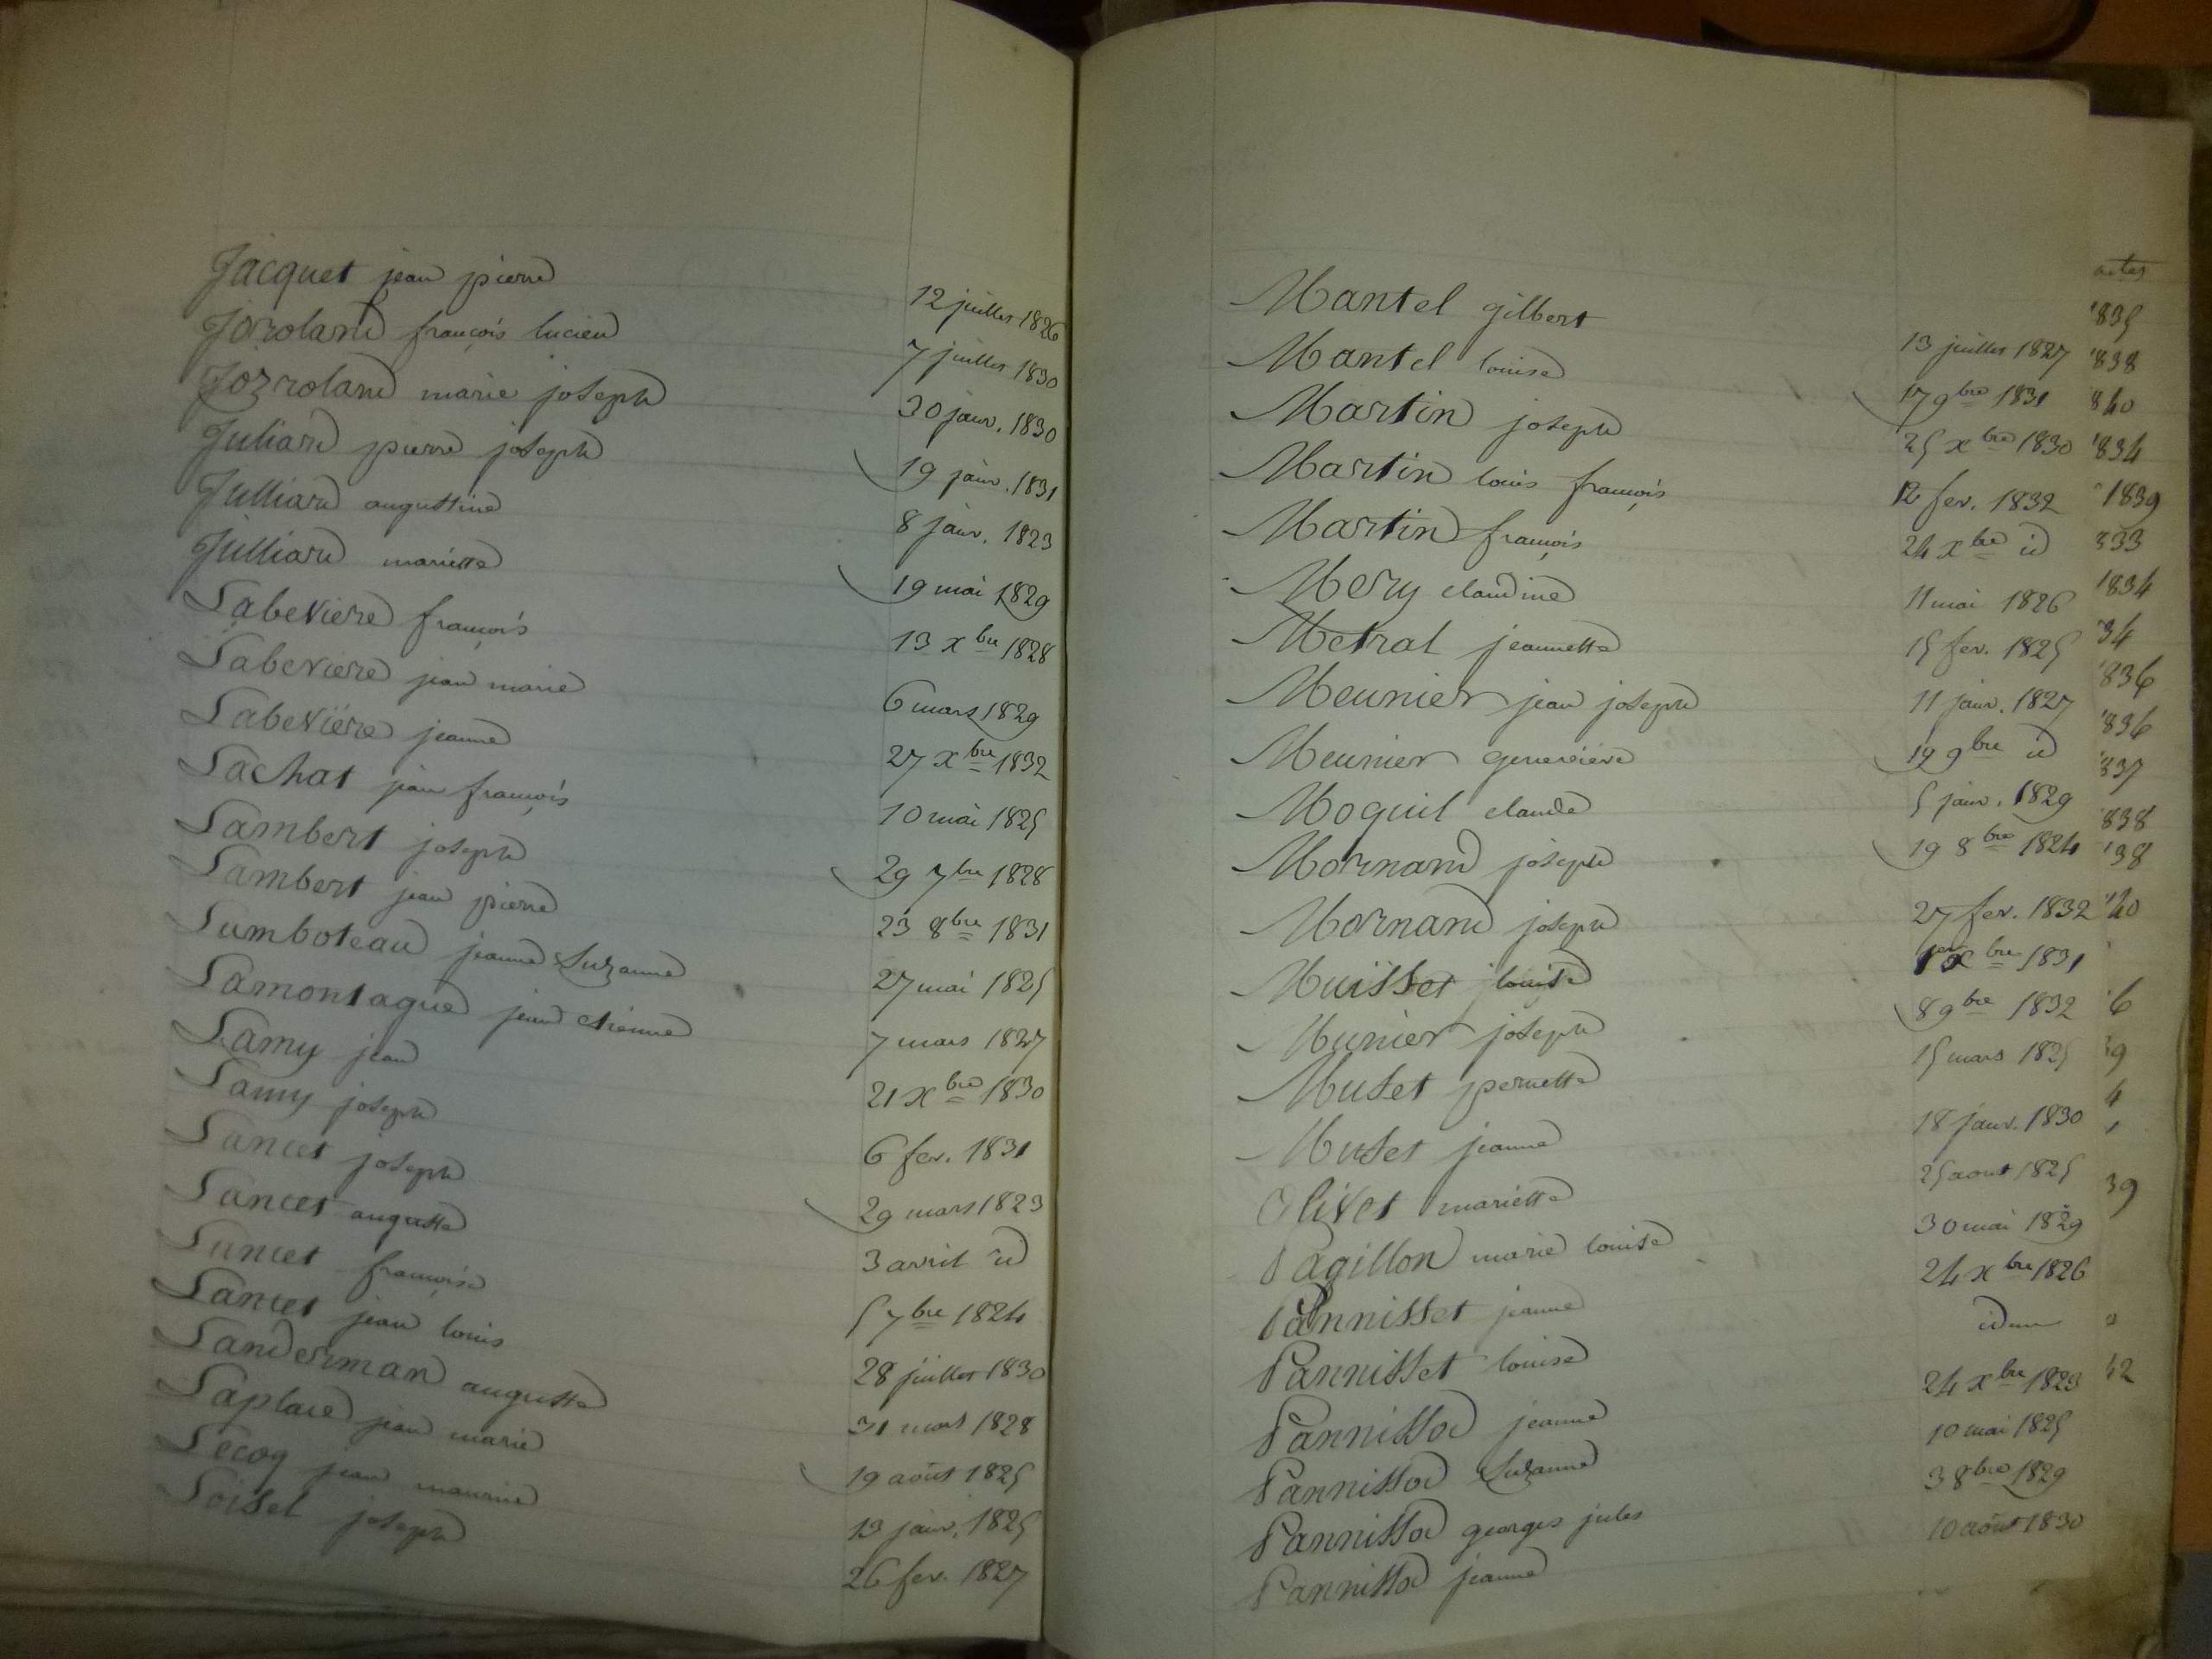 Jacquet jean pierre 12 juillet 1826
Jorroland françois lucien 7 juillet 1830
Jozroland marie joseph 30 janv. 1830
Juliard pierre joseph 19 janv. 1831
Julliard augustine 8 janv. 1823
Julliard mariette 19 mai 1829
Labeviere françois 13 xbre 1828
Labeviere jean marie 6 mars 1829
Labeviere jeanne 27 xbre 1832
Lachat jean françois 10 mai 1825
Lambert joseph 29 7bre 1828
Lambert jean pierre 23 8bre 1831
Lamboteau jeanne Suzanne 27 mai 1825
Lamontagne jean etienne 7 mars 1827
Lamy jean 21 xbre 1830
Lamy joseph 6 fev. 1831
Lancet joseph 29 mars 1823
Lancet auguste 3 avril id
Lancet françoise 5 7bre 1824
Lancet jean louis 28 juillet 1830
Landerman auguste 31 mars 1828
Laplace jean marie 19 août 1825
Lecoq jean maurice 13 janv. 1825
Loisel joseph 26 fev. 1827
Mantel gilbert 13 juillet 1827
Mantel louise 17 9bre 1831
Martin joseph 25 xbre 1830
Martin louis françois 12 fev. 1832
Martin françois 24 xbre id
Mery claudine 11 mai 1826
Metral jeannette 15 fev. 1825
Meunier jean joseph 11 janv. 1827
Meunier genevieve 19 9bre id
Moquil claude 5 janv. 1829
Mornand joseph 19 8bre 1824
Mornand joseph 27 fev. 1832
Muisset louise 1er xbre 1831
Munier joseph 8 9bre 1832
Muset pernette 15 mars 1825
Muset jeanne 18 janv. 1830
Olivet mariette 25 aout 1825
Pagillon marie louise 30 mai 1829
Pannisset jeanne 24 xbre 1826
Pannisset louise idem
Pannissod jeanne 24 xbre 1823
Pannissod Suzanne 10 mai 1825
Pannissod georges jules 3 8bre 1829
Pannissod jeanne 10 août 1830
actes
1839